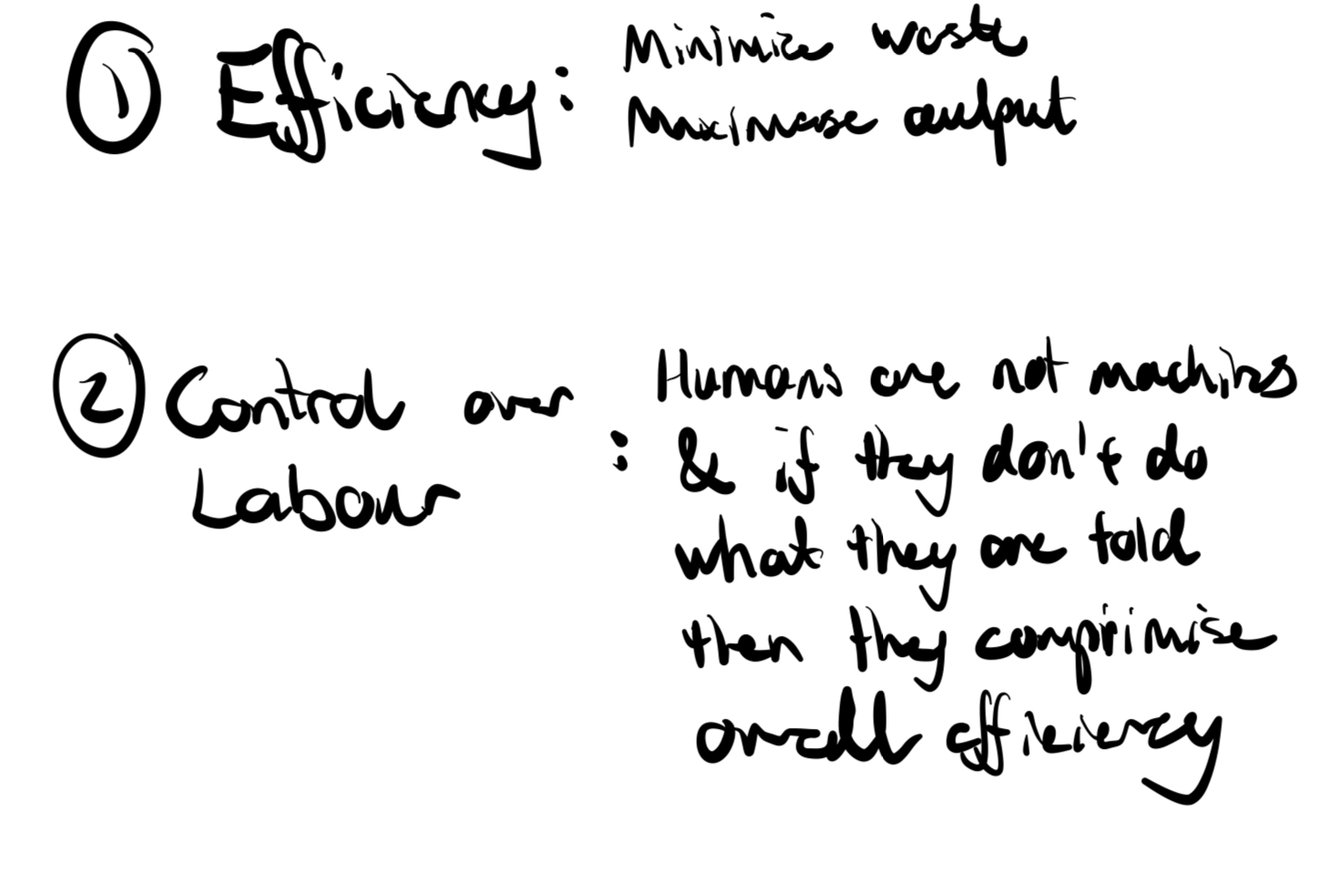 ① Efficiency:
Minimize waste
Maximase output
② Control over
Labour
:
Humans are not machines
& if they don't do
what they are told
then they comprimise
overall efficiency